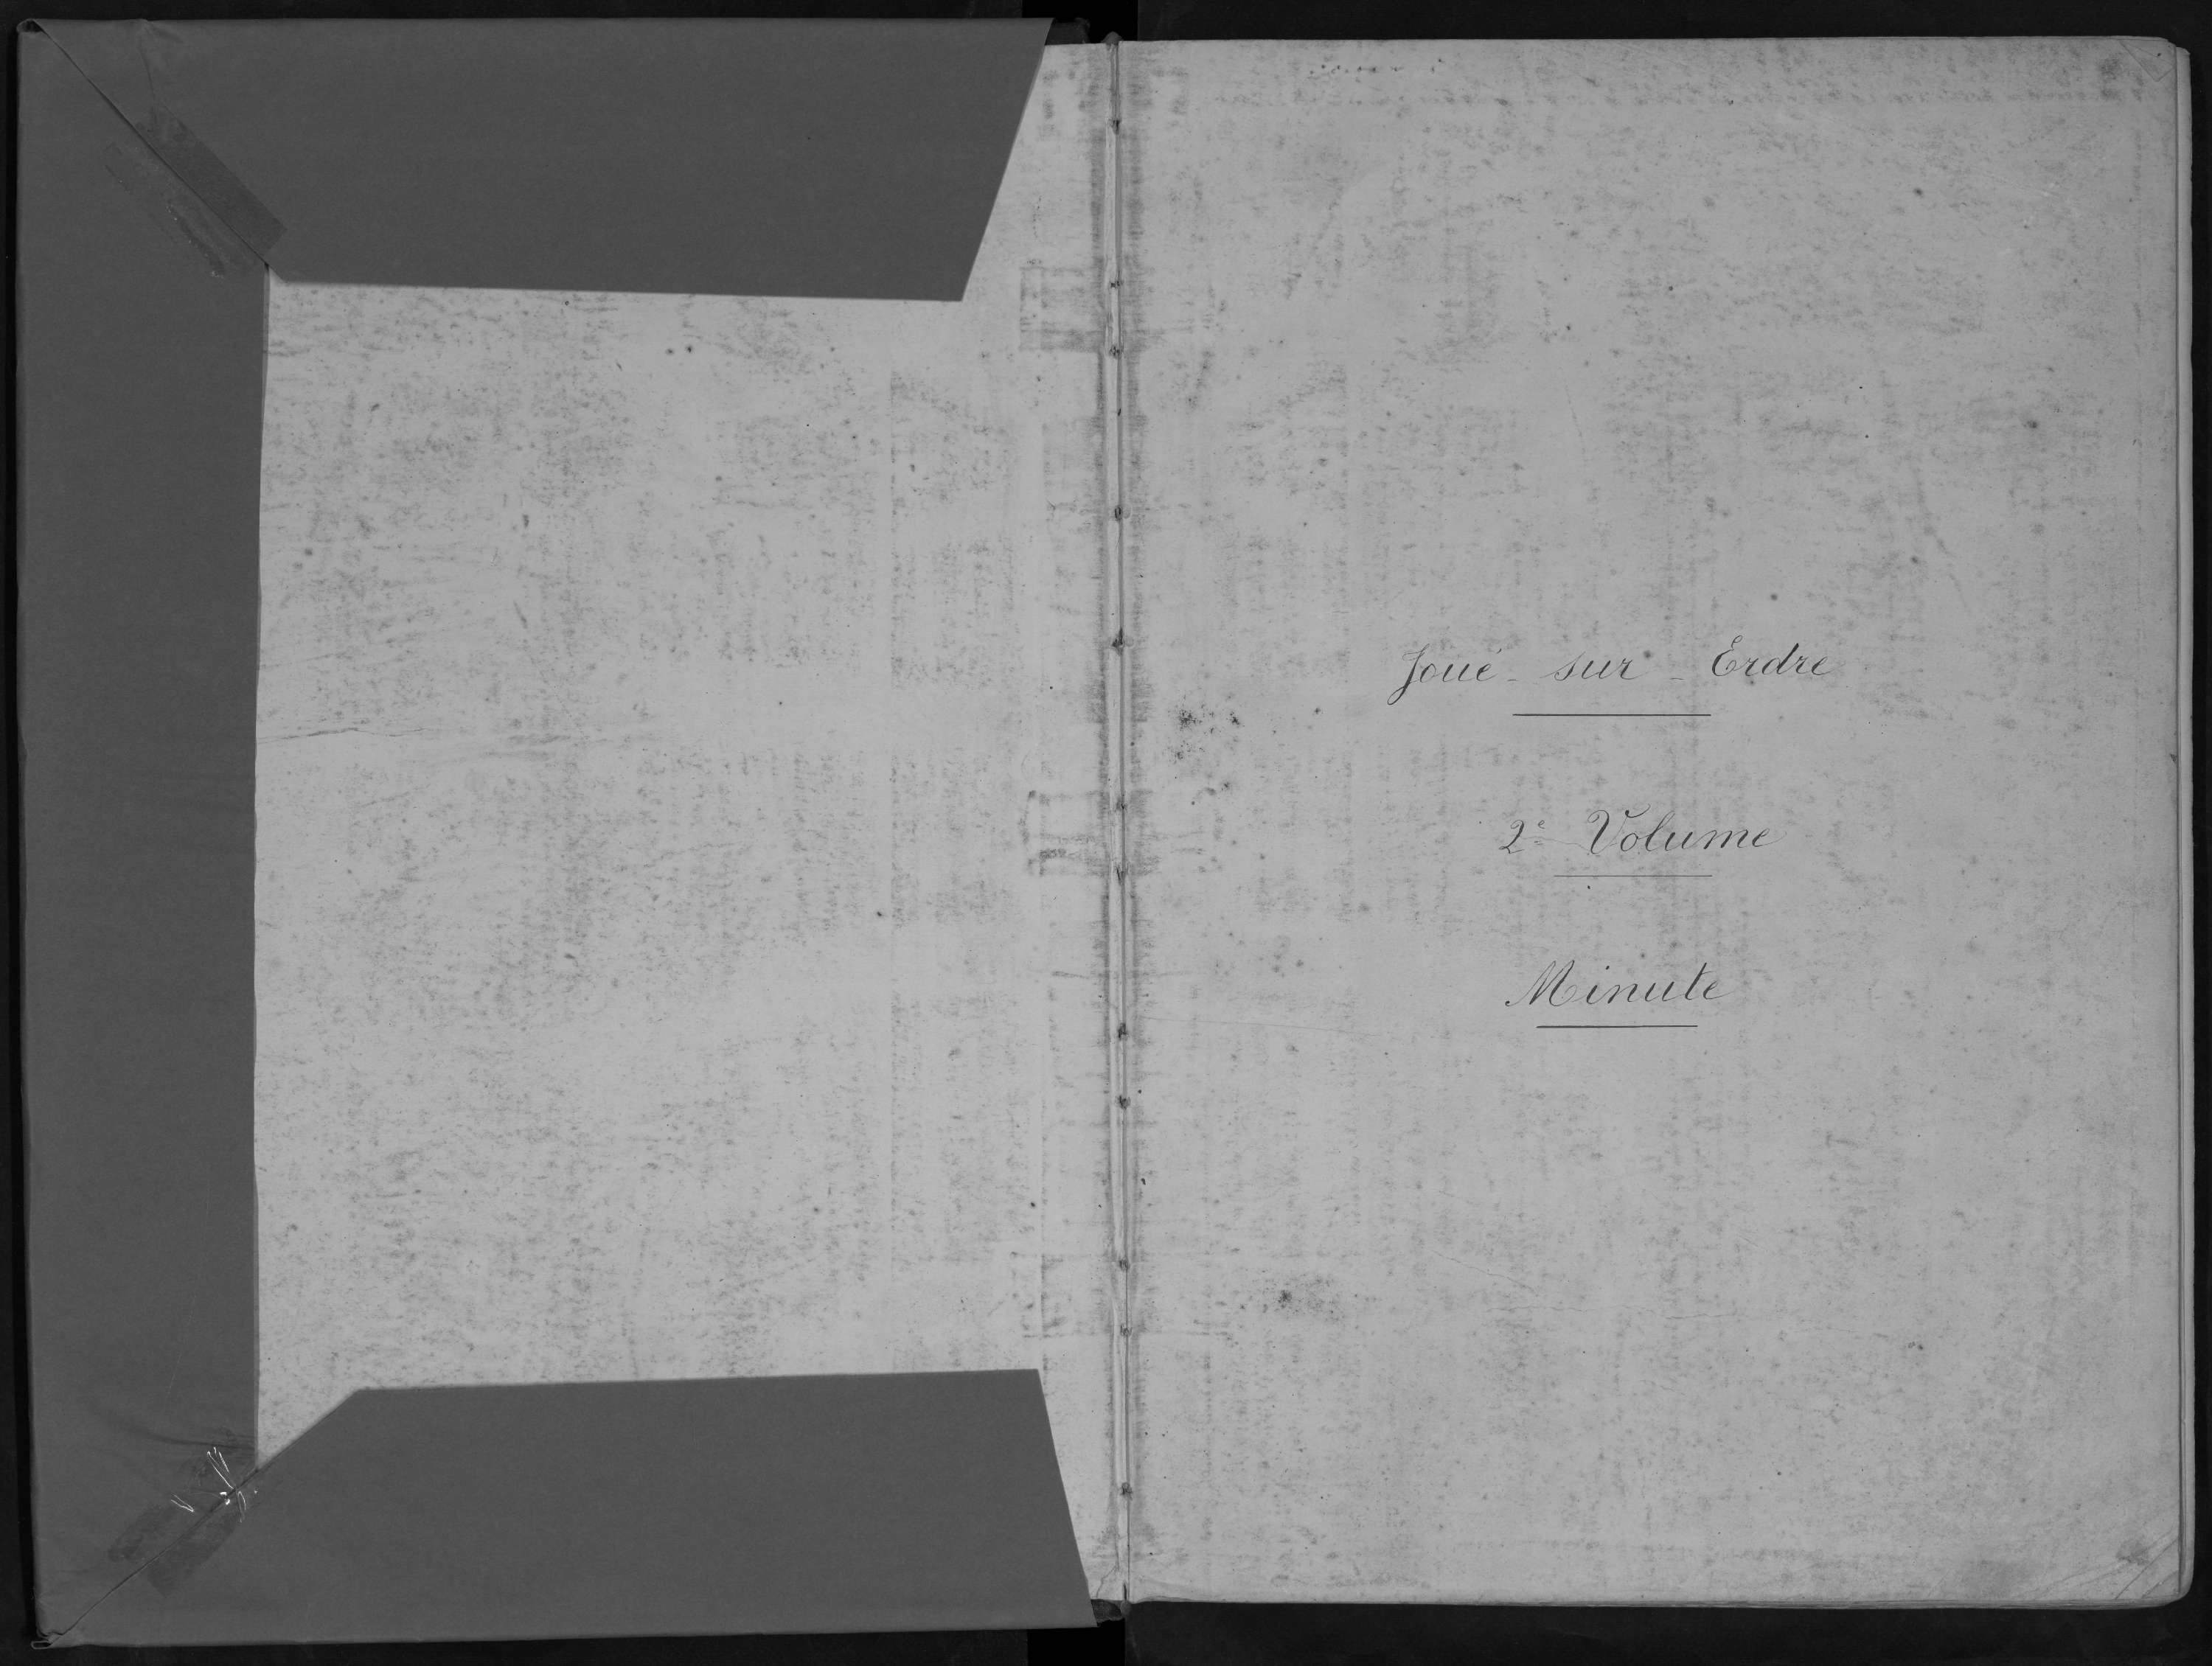 Joué - sur - Erdre
2e Volume
Minute